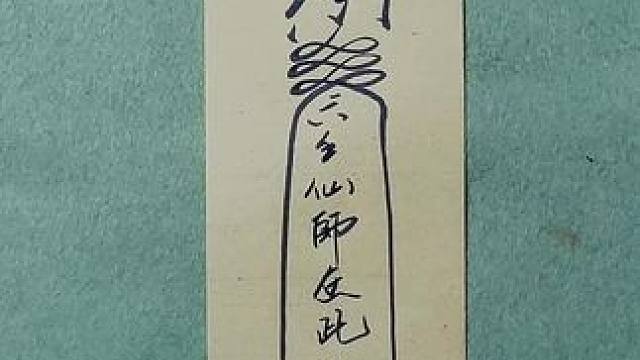 六壬仙師在此